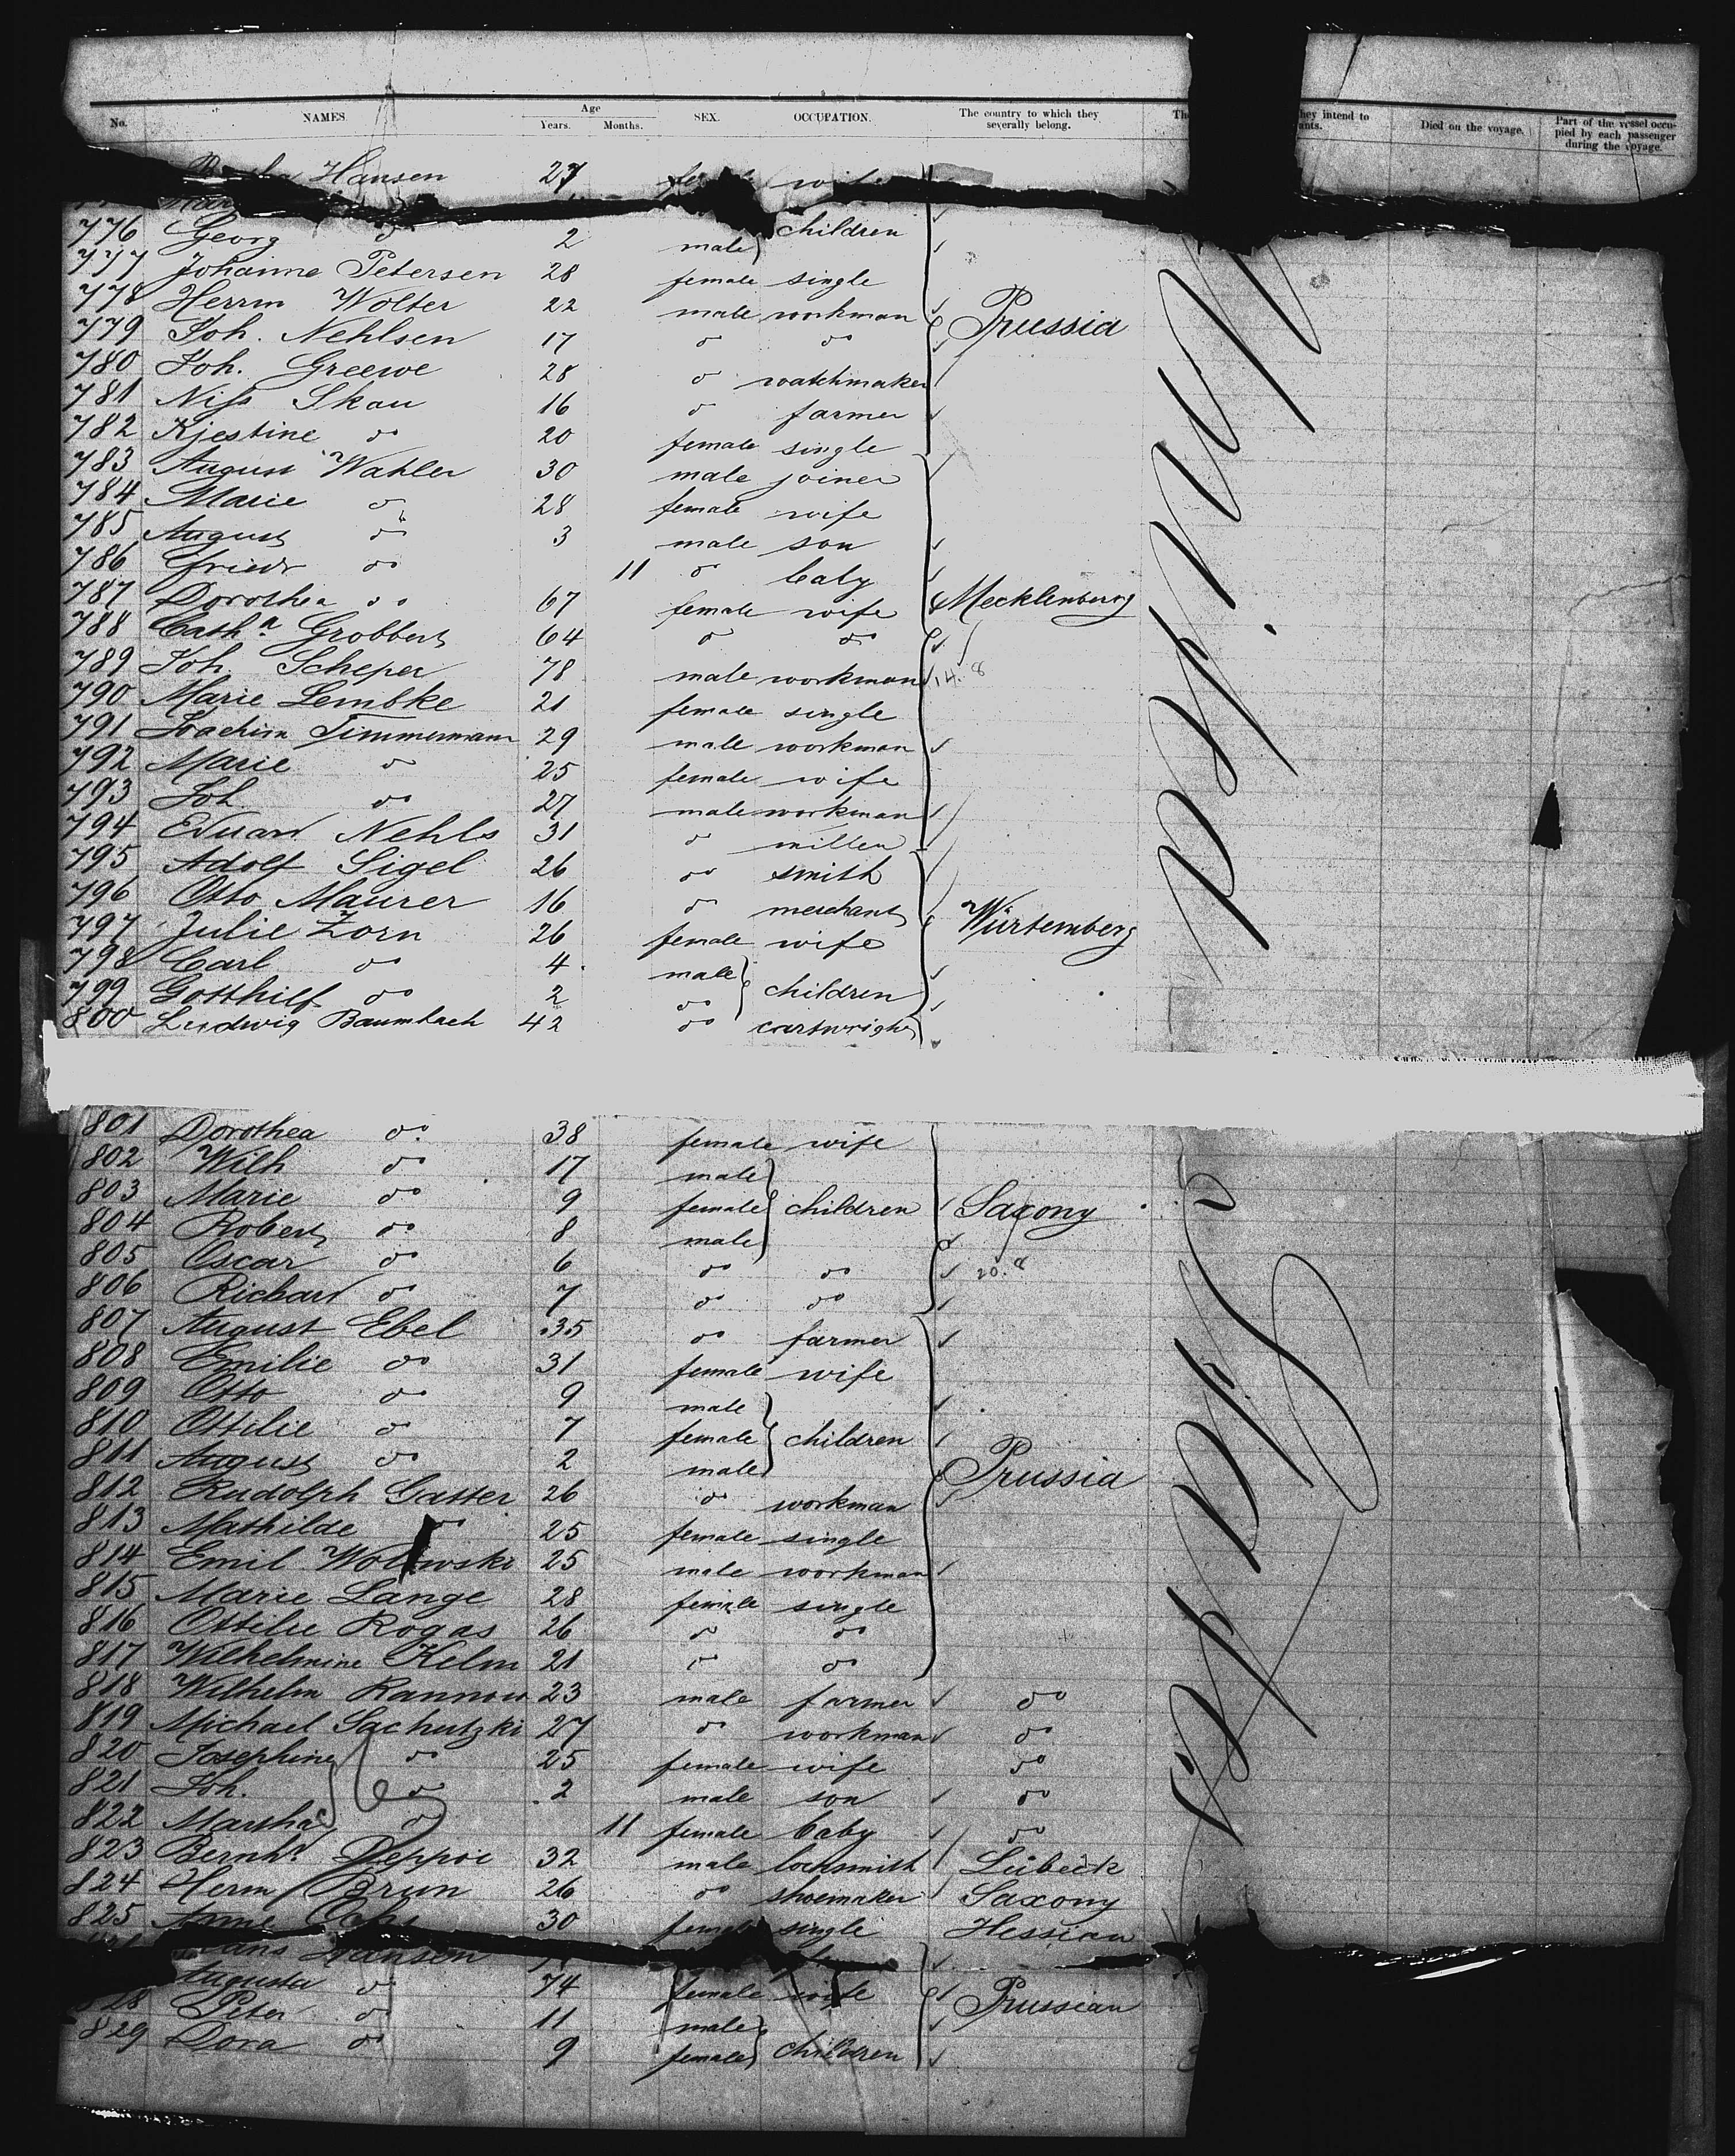 No. NAMES. Age Years. Months. SEX. OCCUPATION. The country to which they severally belong. they intend to Died on the voyage. Part of the vessel occupied by each passenger during the voyage.
Hansen 27 wife
776 Georg do 2 male children
777 Johanne Petersen 28 female single
778 Herrm Wolter 22 male workman Prussia
779 Joh. Nehlsen 17 do do
780 Joh. Greewe 28 do watchmaker
781 Niss Skau 16 do farmer
782 Kjestine do 20 female single
783 August Wahler 30 male joiner
784 Marie do 28 female wife
785 August do 3 male son
786 Friedr do 11 do baby
787 Dorothea do 67 female wife Mecklenberg
788 Catha Grobbert 64 do do
789 Joh. Scheper 78 male workman 14.8
790 Marie Lembke 21 female single
791 Joachim Timmermann 29 male workman
792 Marie do 25 female wife
793 Joh. do 27 male workman
794 Eduard Nehls 31 do miller
795 Adolf Sigel 26 do smith
796 Otto Maurer 16 do merchant Würtemberg
797 Julie Zorn 26 female wife
798 Carl do 4 male children
799 Gotthilf do 2 do
800 Ludwig Baumbach 42 do cartwright
801 Dorothea do 38 female wife
802 Wilh do 17 male
803 Marie do 9 female children Saxony
804 Robert do 8 male
805 Oscar do 6 do do 20.8
806 Richard do 7 do do
807 August Ebel 35 do farmer
808 Emilie do 31 female wife
809 Otto do 9 male
810 Ottilie do 7 female children
811 August do 2 male Prussia
812 Rudolph Gatter 26 do workman
813 Mathilde do 25 female single
814 Emil 25 male workman
815 Marie Lange 28 female single
816 Ottilie Rogas 26 do do
817 Wilhelmine Helm 21 do do
818 Wilhelm Rannow 23 male farmer do
819 Michael Sachutzki 27 do workman do
820 Josephine do 25 female wife do
821 Joh. do 2 male son do
822 Martha do 11 female baby do
823 Bernhd Deppoe 32 male locksmith Lübeck
824 Herm Brun 26 do shoemaker Saxony
825 Anne 30 female single Hessian
Hansen
Augusta do 74 female wife Prussian
828 Peter do 11 male
829 Dora do 9 female children